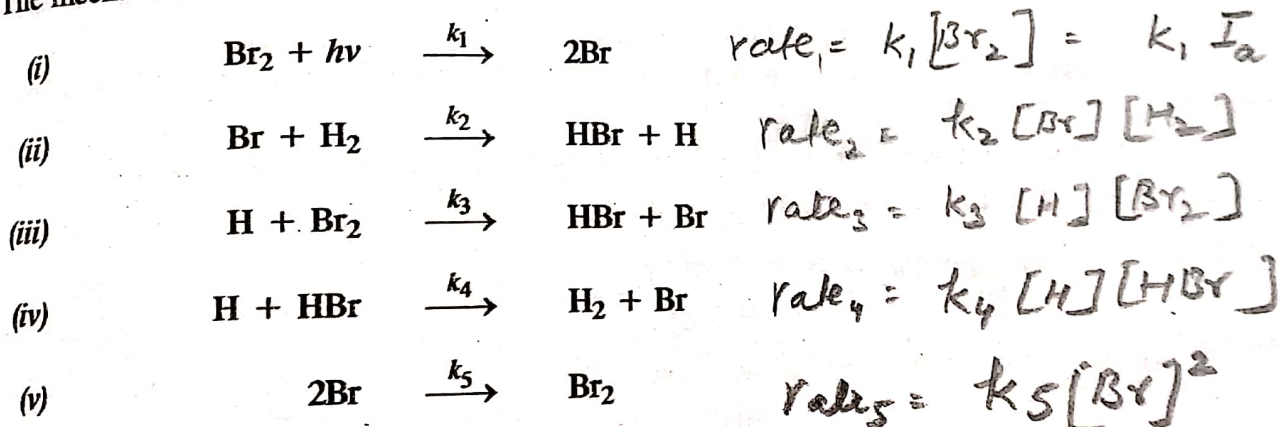 The
(i) Br₂ + hν —k₁→ 2Br rate₁ = k₁[Br₂] = k₁ Iₐ
(ii) Br + H₂ —k₂→ HBr + H rate₂ = k₂ [Br] [H₂]
(iii) H + Br₂ —k₃→ HBr + Br rate₃ = k₃ [H] [Br₂]
(iv) H + HBr —k₄→ H₂ + Br rate₄ = k₄ [H] [HBr]
(v) 2Br —k₅→ Br₂ rate₅ = k₅[Br]²